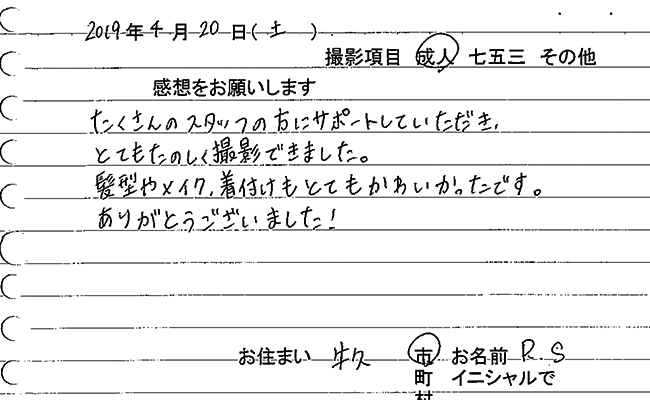 2019年4月20日(土)
撮影項目 成人 七五三 その他
感想をお願いします
たくさんのスタッフの方にサポートしていただき、
とてもたのしく撮影できました。
髪型やメイク、着付けもとてもかわいかったです。
ありがとうございました!
お住まい 牛久 市 お名前 R.S
町 イニシャルで
村